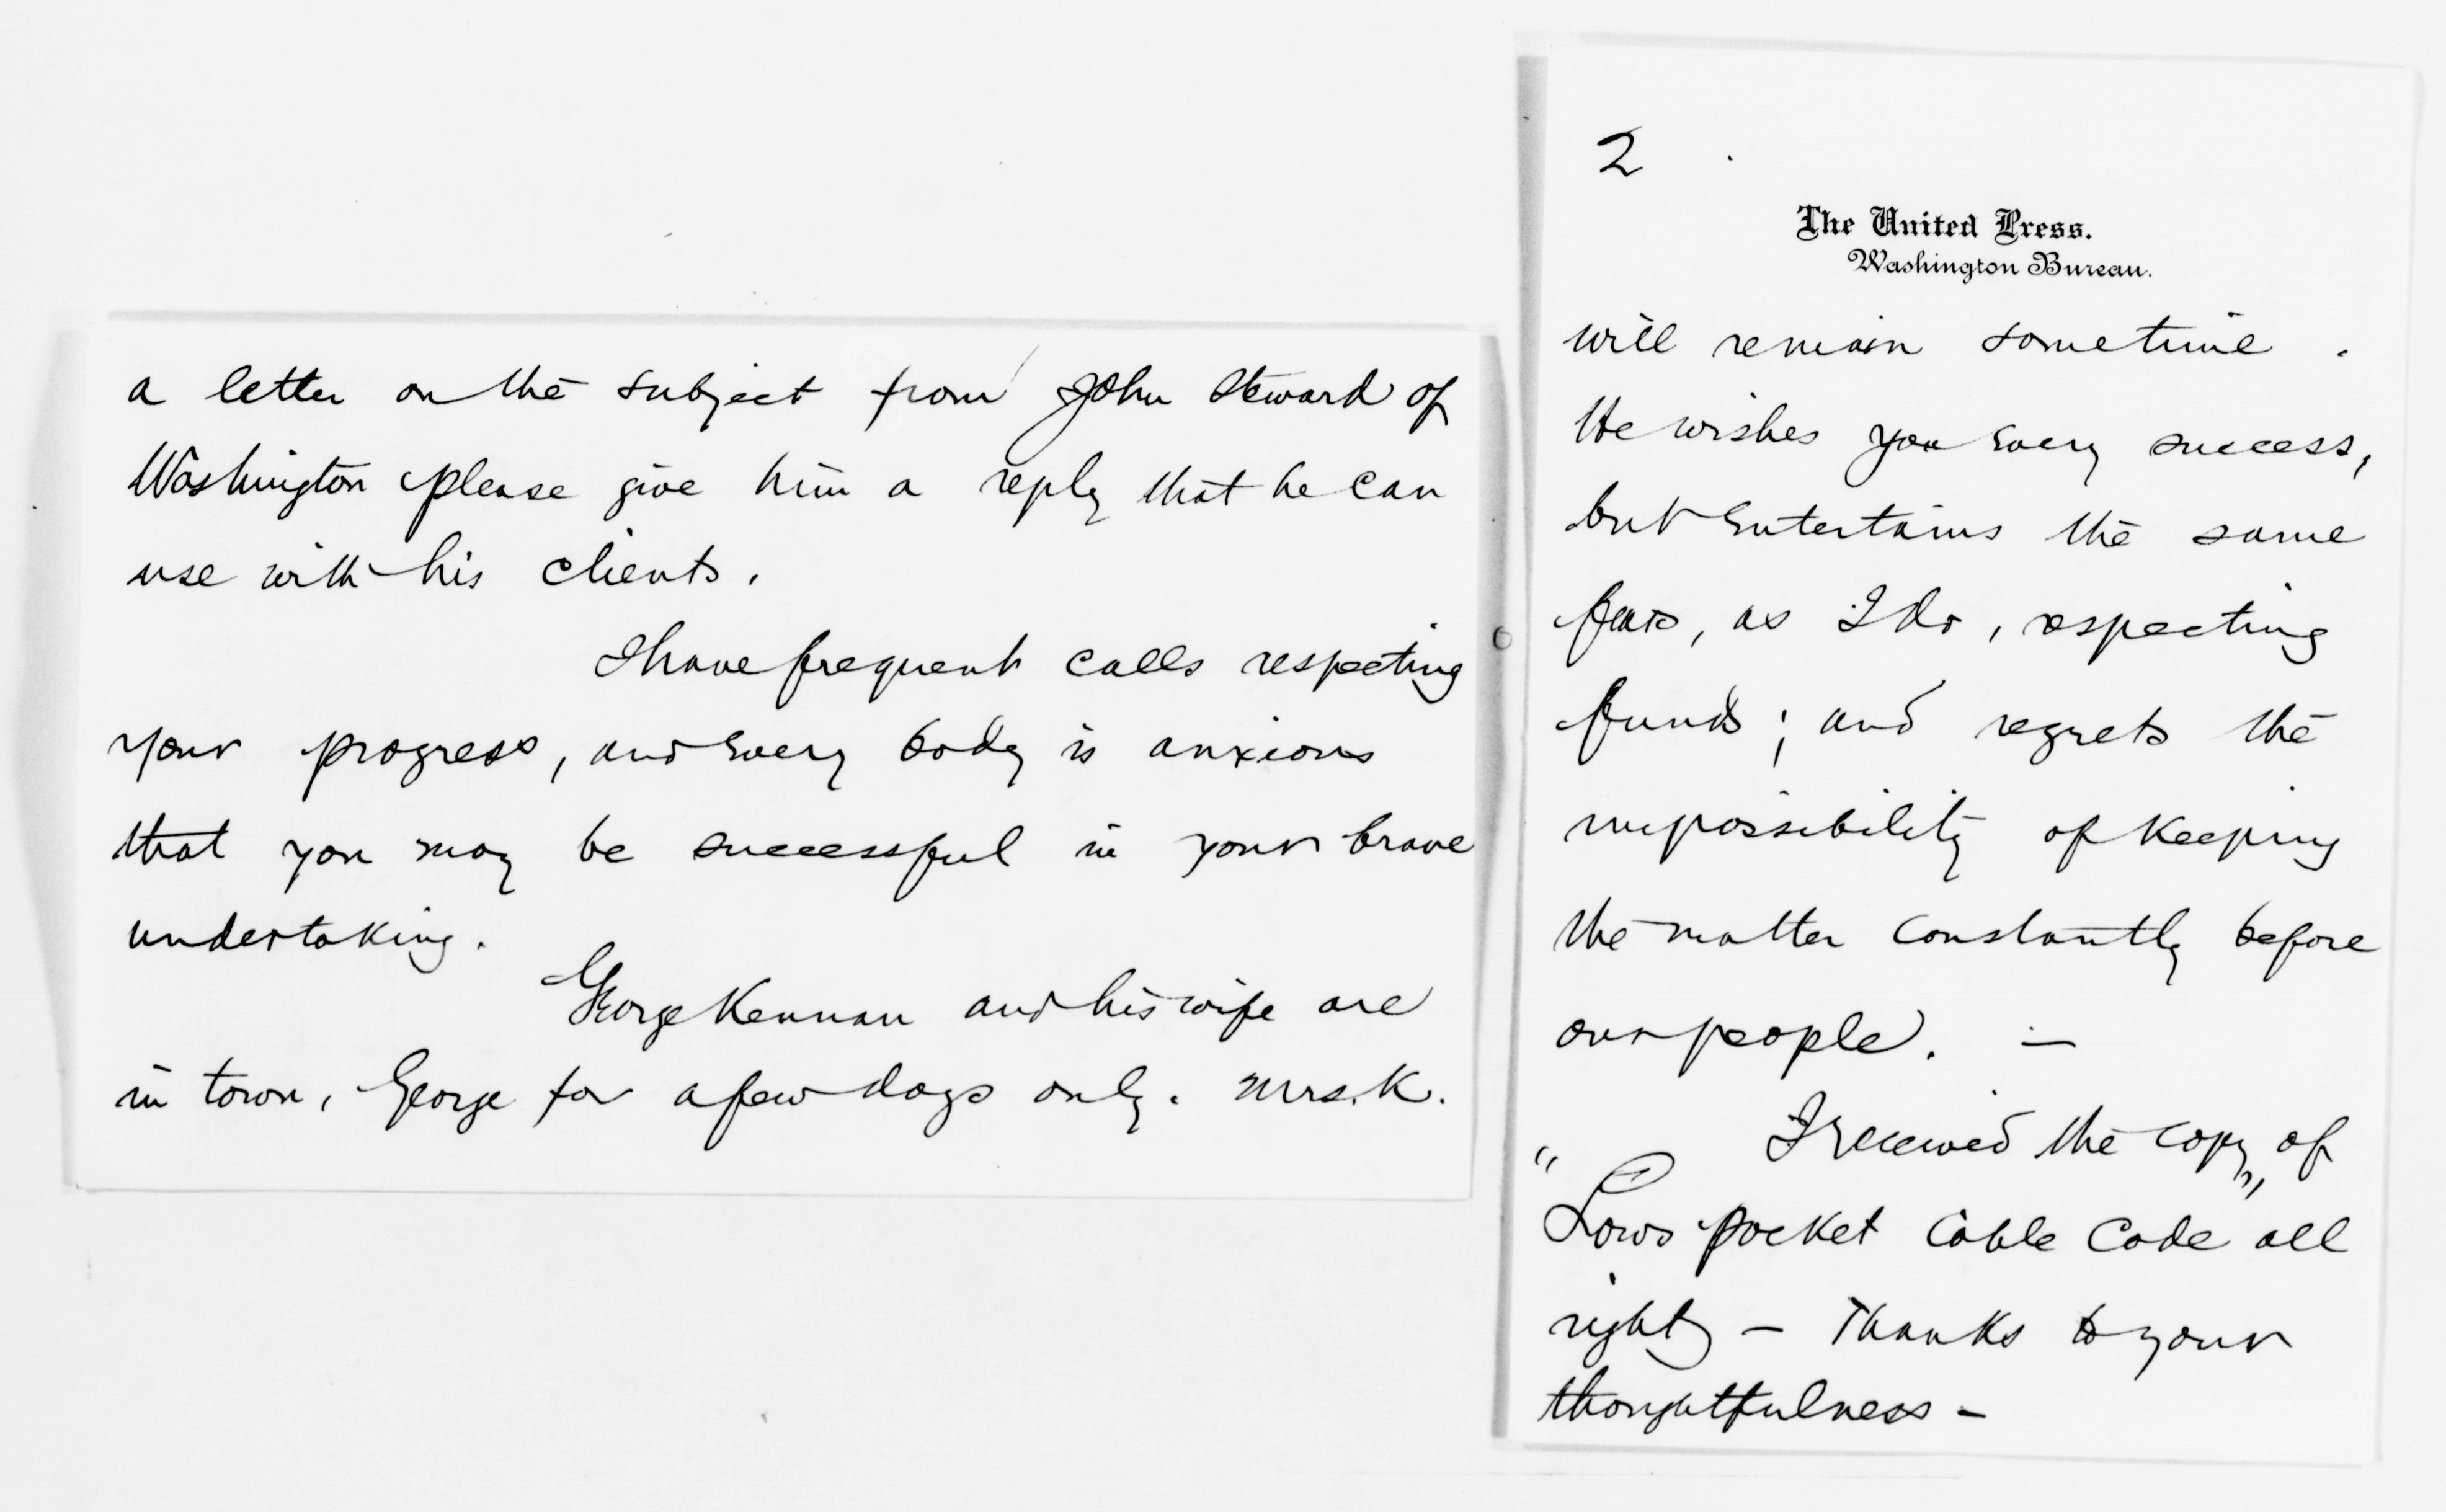 a letter on the subject from John Steward of
Washington please give him a reply that he can
use with his clients.
I have frequent calls respecting
your progress, and every body is anxious
that you may be successful in your brave
undertaking.
George Kennan and his wife are
in town, George for a few days only. Mrs. K.
2
The United Press.
Washington Bureau.
will remain sometime.
He wishes you every success,
but entertains the same
fears, as I do, respecting
funds; and regrets the
impossibility of keeping
the matter constantly before
our people. —
I received the copy of
"Lows Pocket Cable Code" all
right — Thanks to your
thoughtfulness —